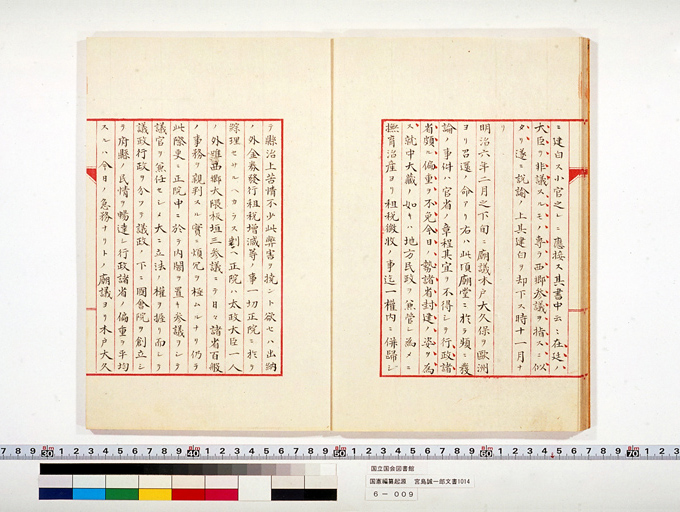 ニ建白ス小官之レニ應接ス其書中云ニ在廷ノ
大臣ヲ非議スルモノ專ラ西郷參議ヲ指スニ似
タリ遂ニ説諭ノ上其建白ヲ却下ス時十一月ナ
リ
明治六年二月之下旬ニ廟議木戸大久保ヲ歐洲
ヨリ召還ノ命アリ右ハ此頃廟堂ニ於テ頻ニ發
論ノ事件ハ官省ノ章程其宜ヲ不得シテ行政諸
省頗ル偏重ヲ不免今日ノ勢諸省封建ノ姿ヲ為
ス就中大藏ノ如キハ地方民政ヲ兼管シ為メニ
撫育治産ヨリ租税徴收ノ事迄一權内ニ併歸シ
テ縣治上苦情不少此弊害ヲ撓ント欲セハ出納
ノ外金券發行租税増減等ノ事一切正院ニ於テ
綜理セサルヘカラス劃ヘ正院ハ太政大臣一人
ノ外雖西郷大隈板垣三參議ニテ日々諸省百般
ノ事務ヲ親判スル實ニ煩冗ヲ極ムルナリ仍テ
此際更ニ正院中ニ於テ内閣ヲ置キ參議ヲシテ
議官ヲ兼任セシメ大ニ立法ノ權ヲ握リ而シテ
議政行政ヲ分ツテ議政ノ下ニ國會院ヲ創立シ
テ府縣ノ民情ヲ暢達シ行政諸省ノ偏重ヲ平均
スルハ今日ノ急務ナリトノ廟議ヨリ木戸大久
国立国会図書館
国憲編纂起源 宮島誠一郎文書1014
6－009